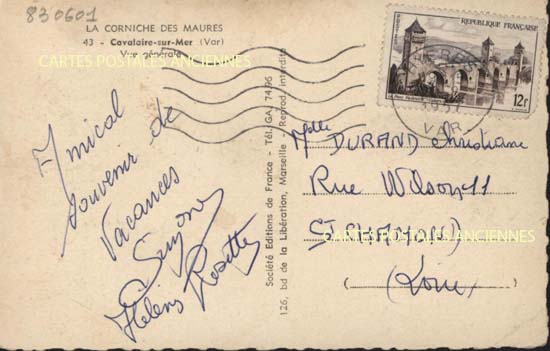 830601
LA CORNICHE DES MAURES
43 - Cavalaire-sur-Mer (Var)
Vue générale
CARTES POSTALES ANCIENNES
Amical
souvenir de
Vacances
Suzone
Hélène Rosette
Société Editions de France - Tél. GA. 74.96
126, bd de la Libération, Marseille - Reprod. interdite
REPUBLIQUE FRANÇAISE
12f
VAR
Mlle DURAND Christiane
Rue Wilson 11
St CHAMOND
CARTES POSTALES ANCIENNES
(Loire)